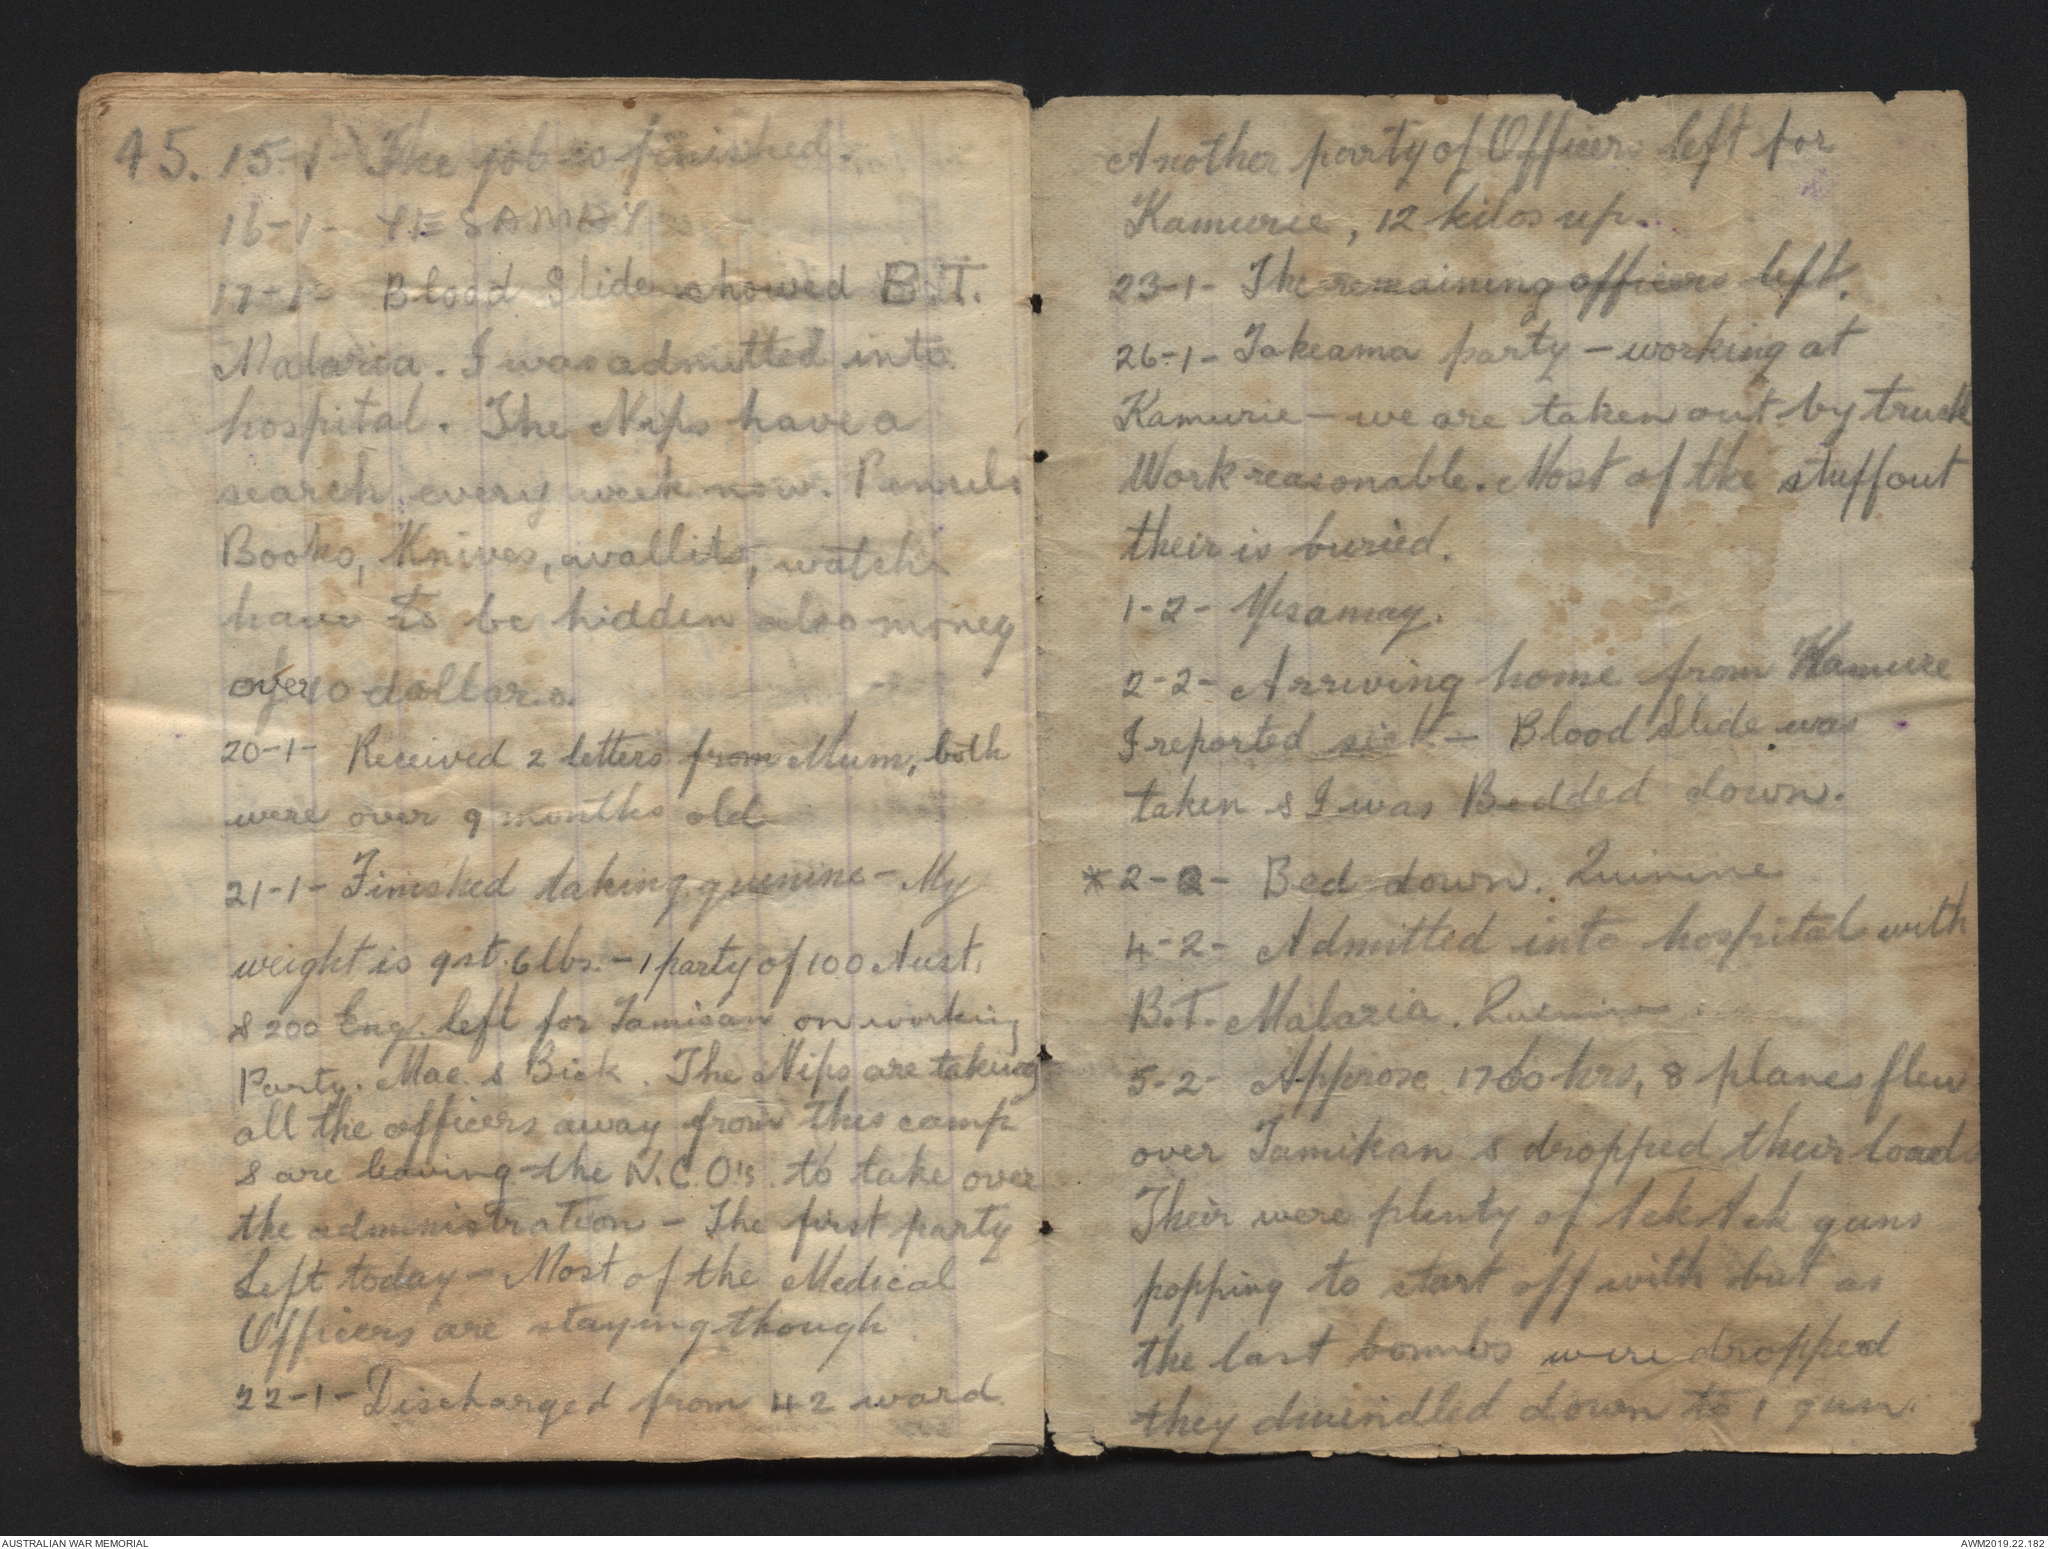 45. 15-1- The job is finished.
16-1- YESAMAY
17-1- Blood Slide showed B.T.
Malaria. I was admitted into
hospital. The Nips have a
search every week now. Pencils
Books, Knives, wallits, watch
have to be hidden also money
over 10 dollars.
20-1- Received 2 letters from Mum, both
were over 9 months old
21-1- Finished taking quinine - My
weight is 9st. 6lbs. - 1 party of 100 Aust.
& 200 Eng. left for on working
Party. Mac. & Bick. The Nips are taking
all the officers away from this camp
& are leaving the N.C.O's. to take over
the administration - The first party
Left today - Most of the Medical
Officers are staying though
22-1- Discharged from 42 ward.
Another party of Officers left for
Kamurie, 12 kilos up.
23-1- The remaining officers left.
26-1- Takeama party - working at
Kamurie - we are taken out by truck
Work reasonable. Most of the stuff out
their is buried.
1-2- Yesamay.
2-2- Arriving home from Kamure
I reported sick - Blood Slide was
taken & I was Bedded down.
*2-2- Bed down. Quinine
4-2- Admitted into hospital with
B.T. Malaria. Quinine.
5-2- Approx 1700 hrs, 8 planes flew
over Tamikan & dropped their load
Their were plenty of Ack Ack guns
popping to start off with but as
the last bombs were dropped
they dwindled down to 1 gun.
AUSTRALIAN WAR MEMORIAL
AWM2019.22.182